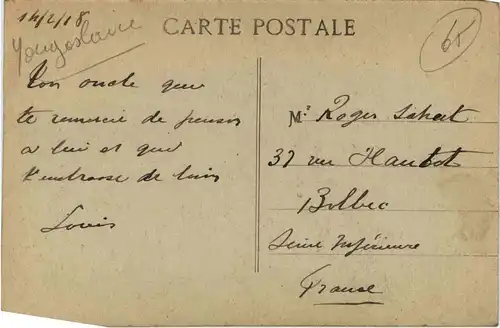 14/2/18
Yougoslavie
CARTE POSTALE
65
Ton oncle que
te remercie de penser
a lui et que
t'embrasse de loin
Louis
Mr Roger
37 rue
Bolbec
Seine Inférieure
France